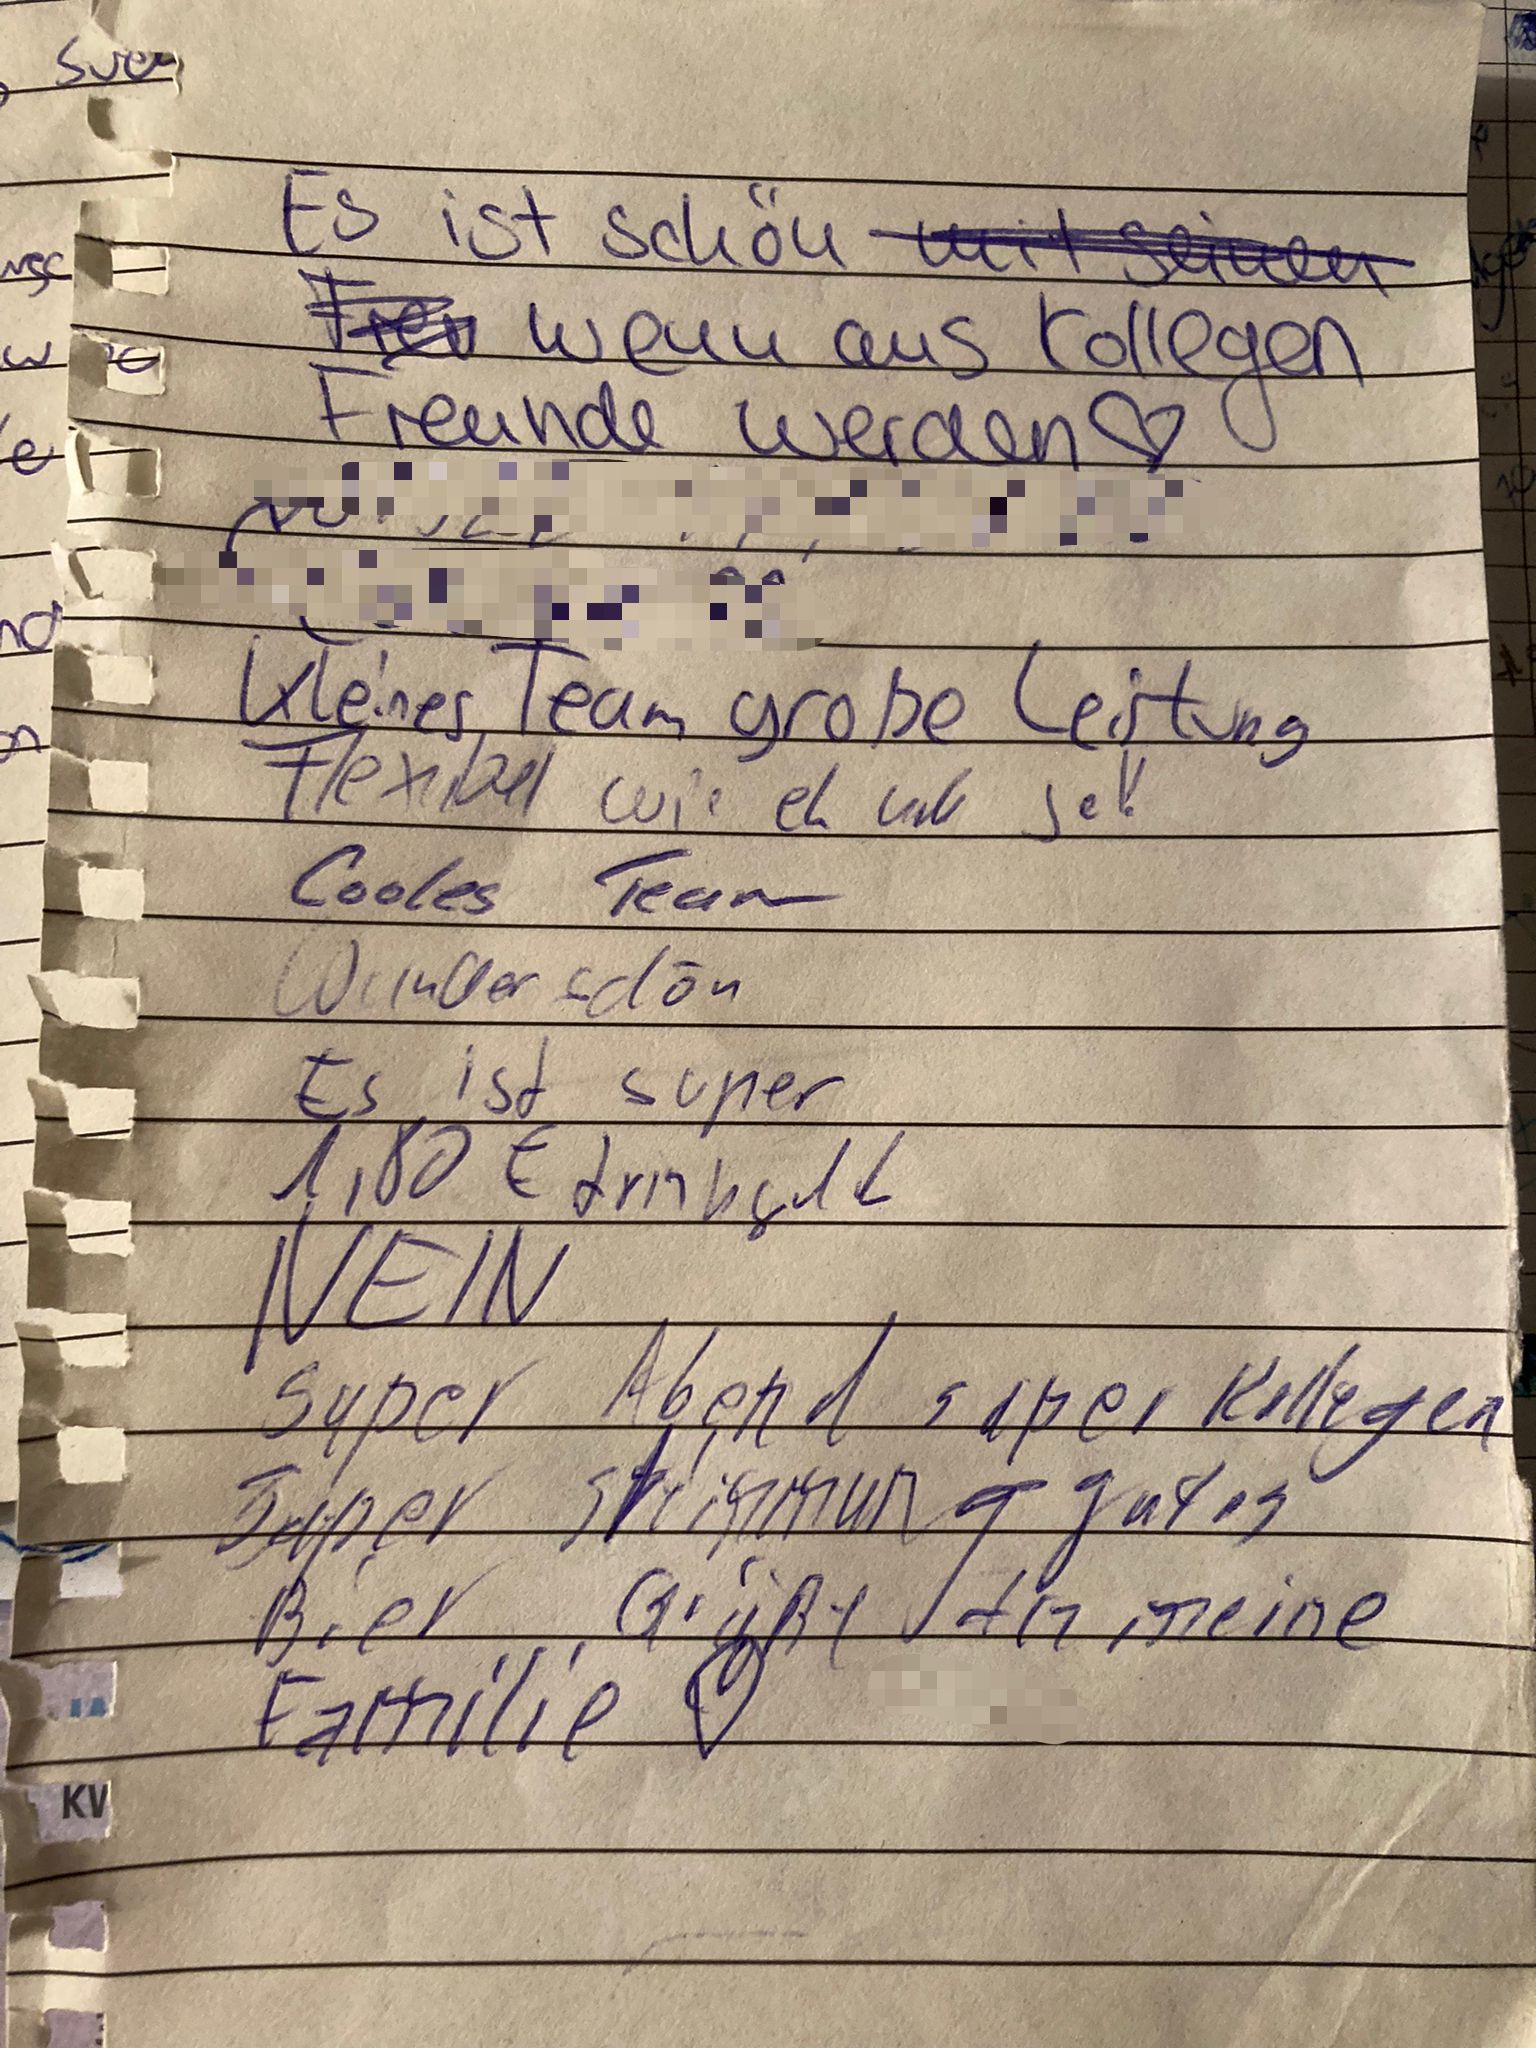 Es ist schön mit seinen
Freu wenn aus Kollegen
Freunde werden♡
Kleines Team große Leistung
Flexibel wie eh und je!!
Cooles Team
Wunderschön
Es ist super
1,80 € trinkgeld
NEIN
Super Abend super Kollegen
Super stimmung gutes
Bier Grüße An meine
Familie ♡
KV